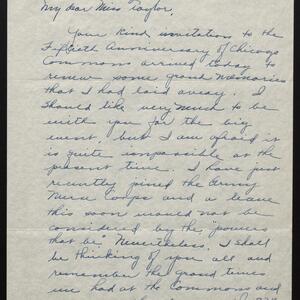 My dear Miss Taylor,
Your kind invitation to the
Fiftieth Anniversary of Chicago
Commons arrived today to
renew some grand memories
that I had laid away. I
should like very much to be
with you for the big
event, but I am afraid it
is quite impossible at the
present time. I have just
recently joined the Army
Nurse Corps and a leave
this soon would not be
considered by the "powers
that be." Nevertheless, I shall
be thinking of you all and
remember the grand times
we had at the Commons and